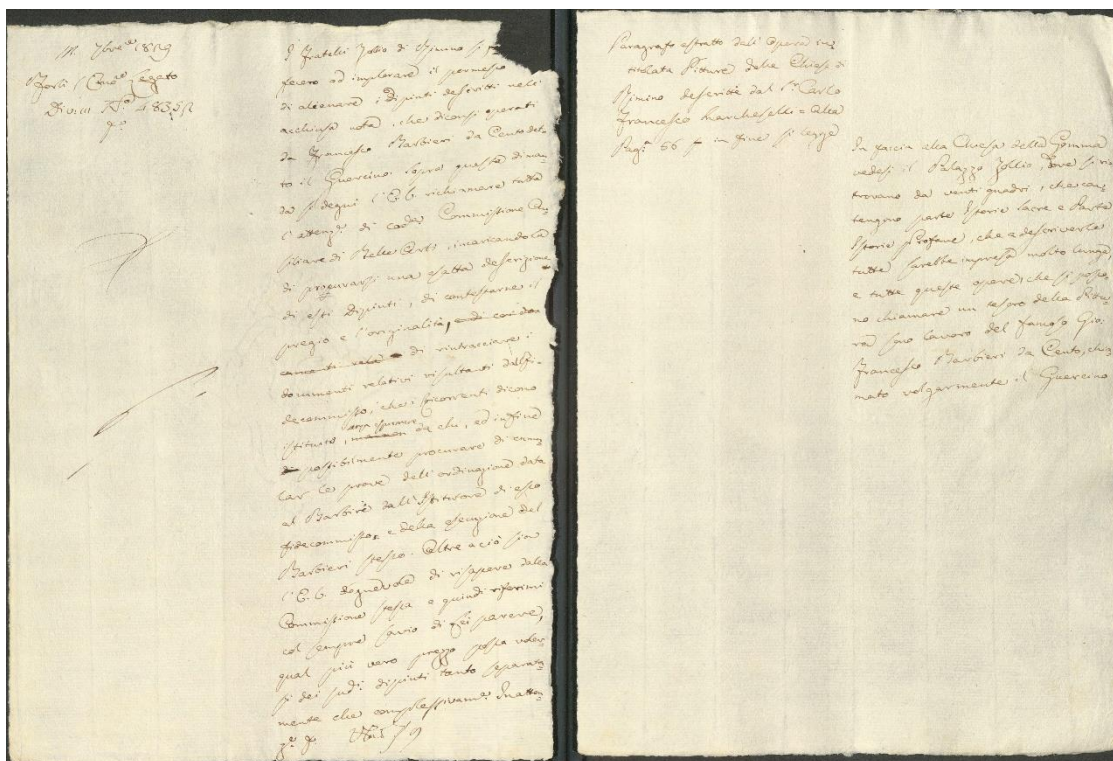 1829
Forlì Legato
I Fratelli Zollio di Rimino si
fecero ad implorare il permesso
di alienare i dipinti descritti nell
acchiusa nota, che diconsi operati
da Francesco Barbieri da Cento det-
to il Guercino. Sopra questa diman-
da si degni l'E. V. richiamare tutta
l'attenz.e di codesta Commissione Au-
siliare di Belle Arti, incaricandola
di procurarsi una esatta descrizione
di essi dipinti, di contestarne il
pregio e l'originalità,
di rintracciare i
documenti relativi risultanti dal fi-
decommisso, che i ricorrenti dicono
istituito, da chi, ed infine
possibilmente procurare di
le prove dell'ordinazione data
al Barbieri dall'Istitutore di esso
fidecommisso, e della esenzione del
Barbieri stesso. Oltre a ciò sia
l'E. V. degnevole di risapere dalla
Commissione stessa e quindi riferirmi
col sempre savio di Lei parere,
qual più vero prezzo possa voler-
si dei sud.i dipinti tanto separata-
mente che complessivam.e In atten-
Paragrafo estratto dall'Opera in-
titolata Pitture delle Chiese di
Rimino descritte dal S.r Carlo
Francesco Marcheselli = Alla
Pag.a 66 in fine si legge
In faccia alla Chiesa della Gomma
vedesi il Palazzo Zollio, dove si ri-
trovano da venti quadri, che con-
tengono parte Istorie Sacre e Parte
Istorie Profane, che a descriverle
tutte sarebbe impresa molto lunga,
e tutte queste opere, che si posso-
no chiamare un tesoro della Pittu-
ra sono lavoro del famoso Gio:
Francesco Barbieri da Cento, chia-
mato volgarmente il Guercino